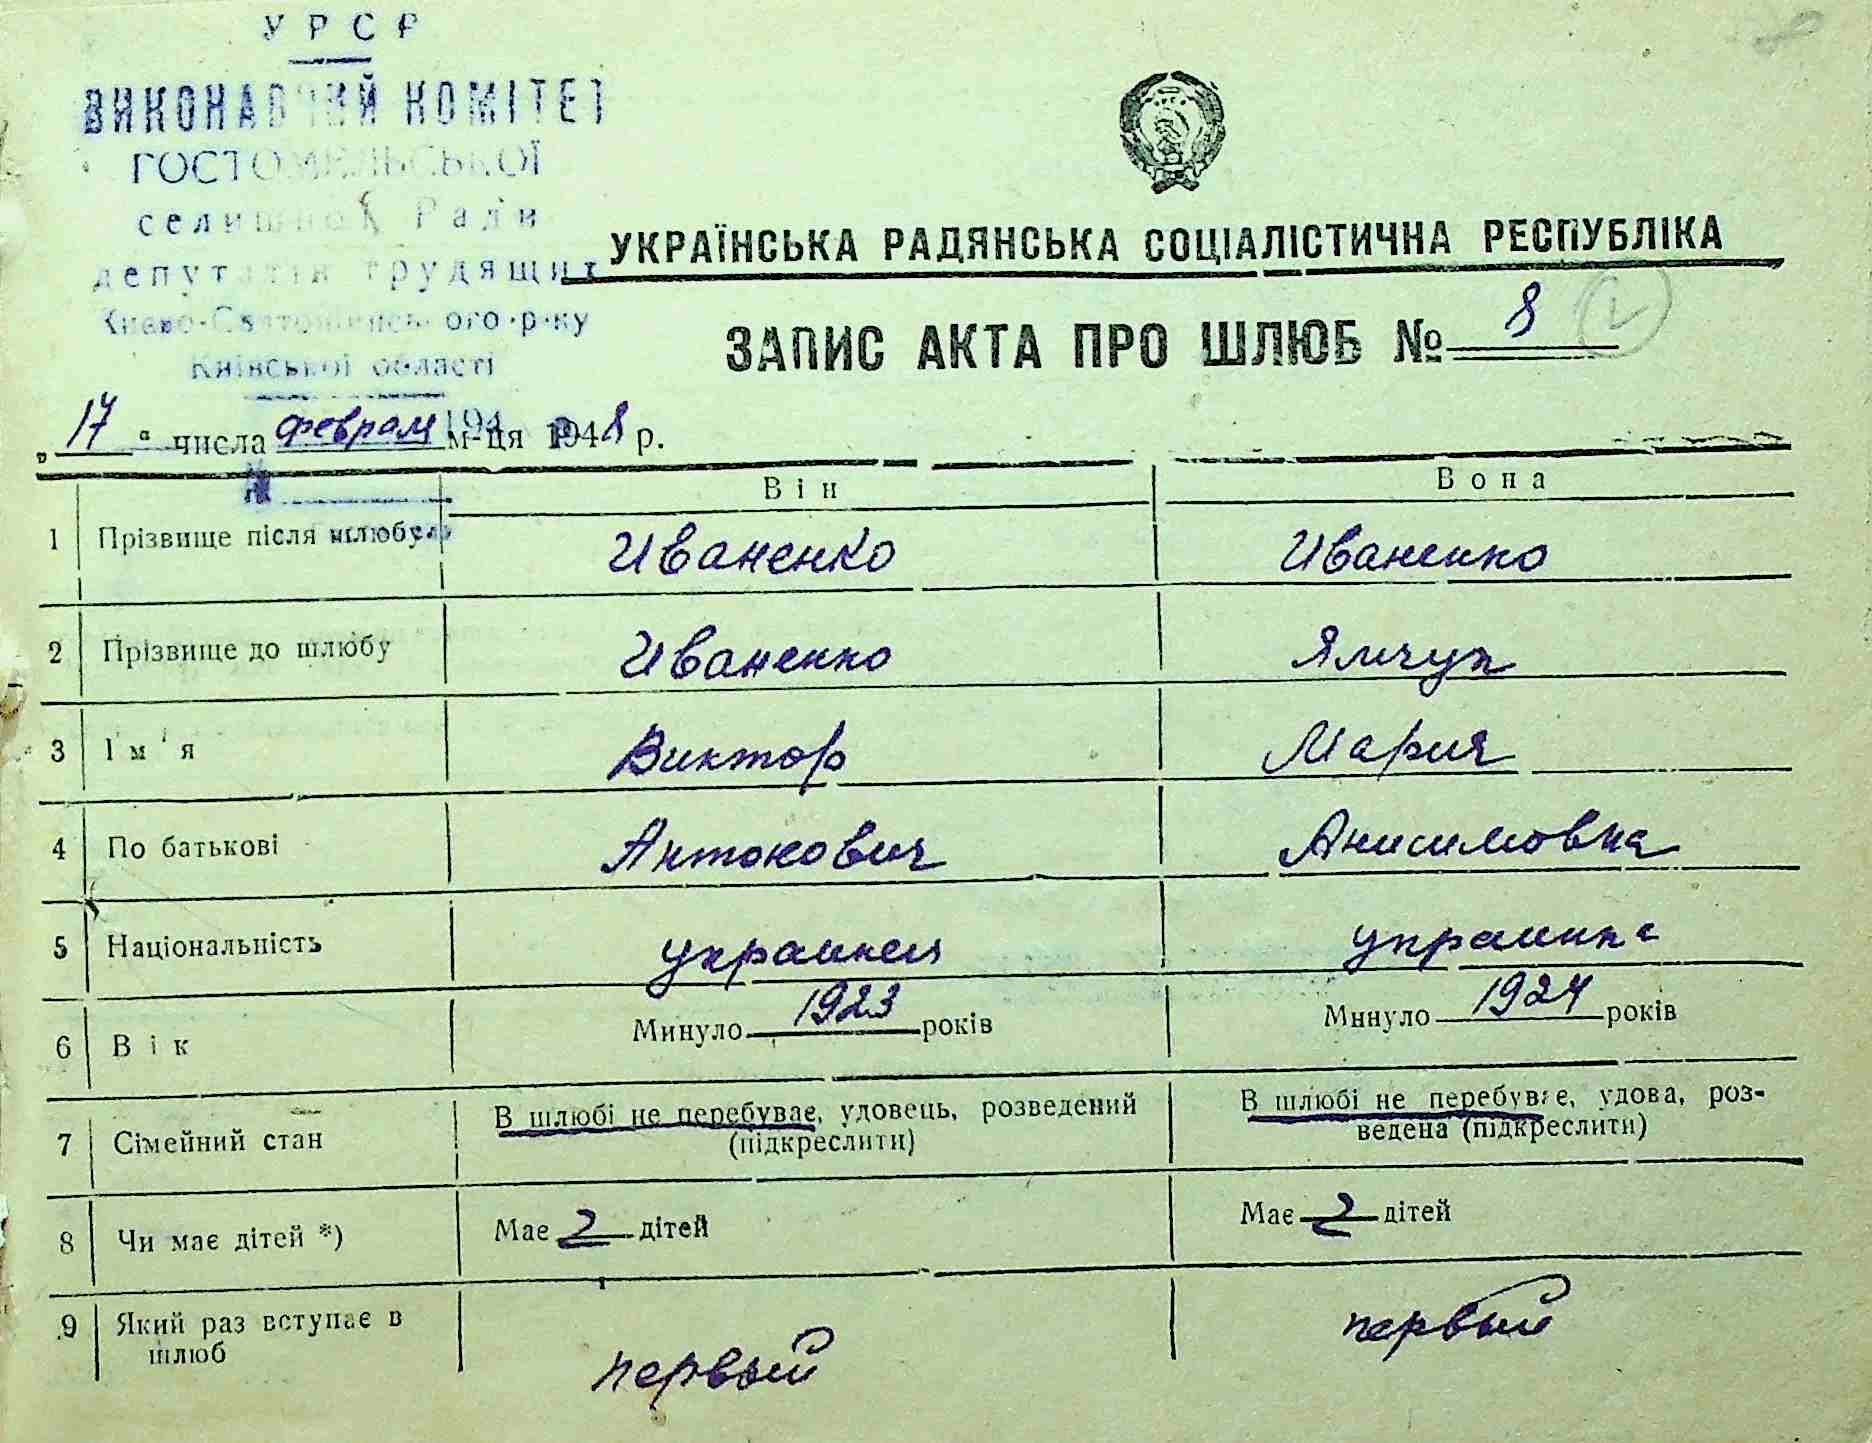 УРСР
ВИКОНАВЧИЙ КОМІТЕТ
ГОСТОМЕЛЬСЬКОЇ
селищної Ради
депутатів трудящих
Києво-Святошинського р-ку
Київської області
УКРАЇНСЬКА РАДЯНСЬКА СОЦІАЛІСТИЧНА РЕСПУБЛІКА
ЗАПИС АКТА ПРО ШЛЮБ № 8
„17“ числа феврал м-ця 1948 р.
Він Вона
1 Прізвище після шлюбу Иваненко Иваненко
2 Прізвище до шлюбу Иваненко Ямчук
3 Ім'я Виктор Мария
4 По батькові Антонович Анисимовна
5 Національність украинец украинка
6 Вік Минуло 1923 років Минуло 1924 років
7 Сімейний стан В шлюбі не перебуває, удовець, розведений В шлюбі не перебуває, удова, роз-
(підкреслити) ведена (підкреслити)
8 Чи має дітей *) Має 2 дітей Має 2 дітей
9 Який раз вступає в
шлюб первый первый